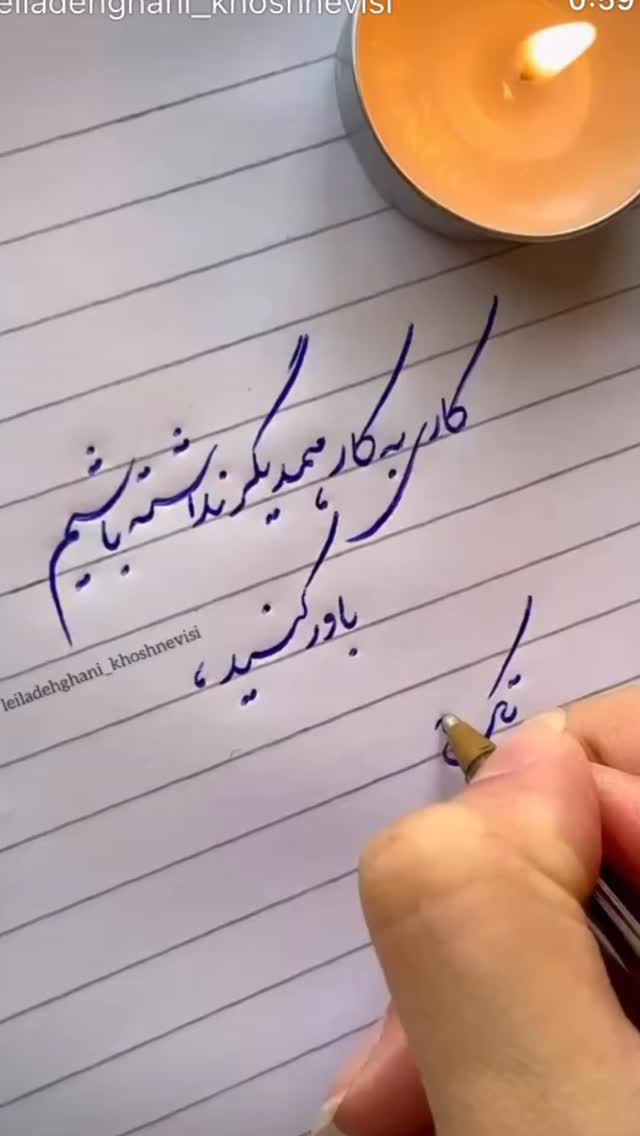 leiladehghani_khoshnevisi
0:59
کاری به کار همدیگر نداشته باشیم
باور کنید،
leiladehghani_khoshnevisi